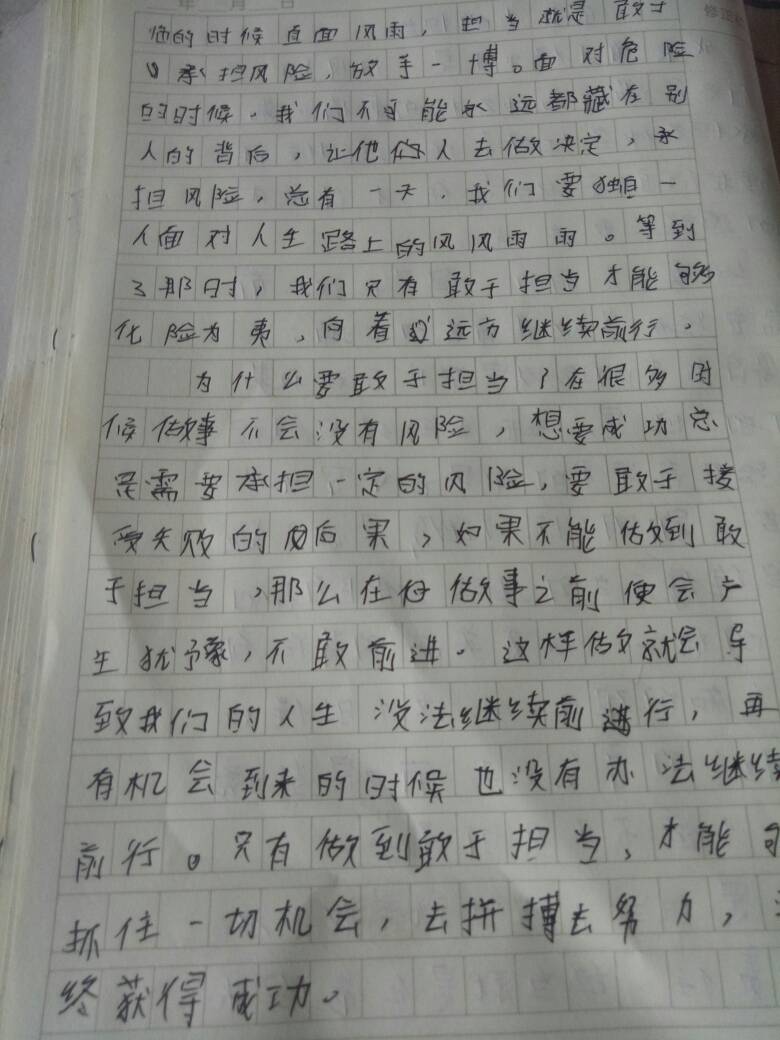 年 月 日
修正
临的时候直面风雨，担当就是敢于
承担风险，放手一博。面对危险
的时候，我们不可能永远都藏在别
人的背后，让他们人去做决定，承
担风险，总有一天，我们要独自一
人面对人生路上的风风雨雨。等到
了那时，我们只有敢于担当才能够
化险为夷，向着远方继续前行。
为什么要敢于担当？在很多时
候做事不会没有风险，想要成功总
是需要承担一定的风险，要敢于接
受失败的后果，如果不能做到敢
于担当，那么在做事之前便会产
生犹豫，不敢前进。这样做就会导
致我们的人生没法继续前进行，再
有机会到来的时候也没有办法继续
前行。只有做到敢于担当，才能
抓住一切机会，去拼搏去努力，
终获得成功。